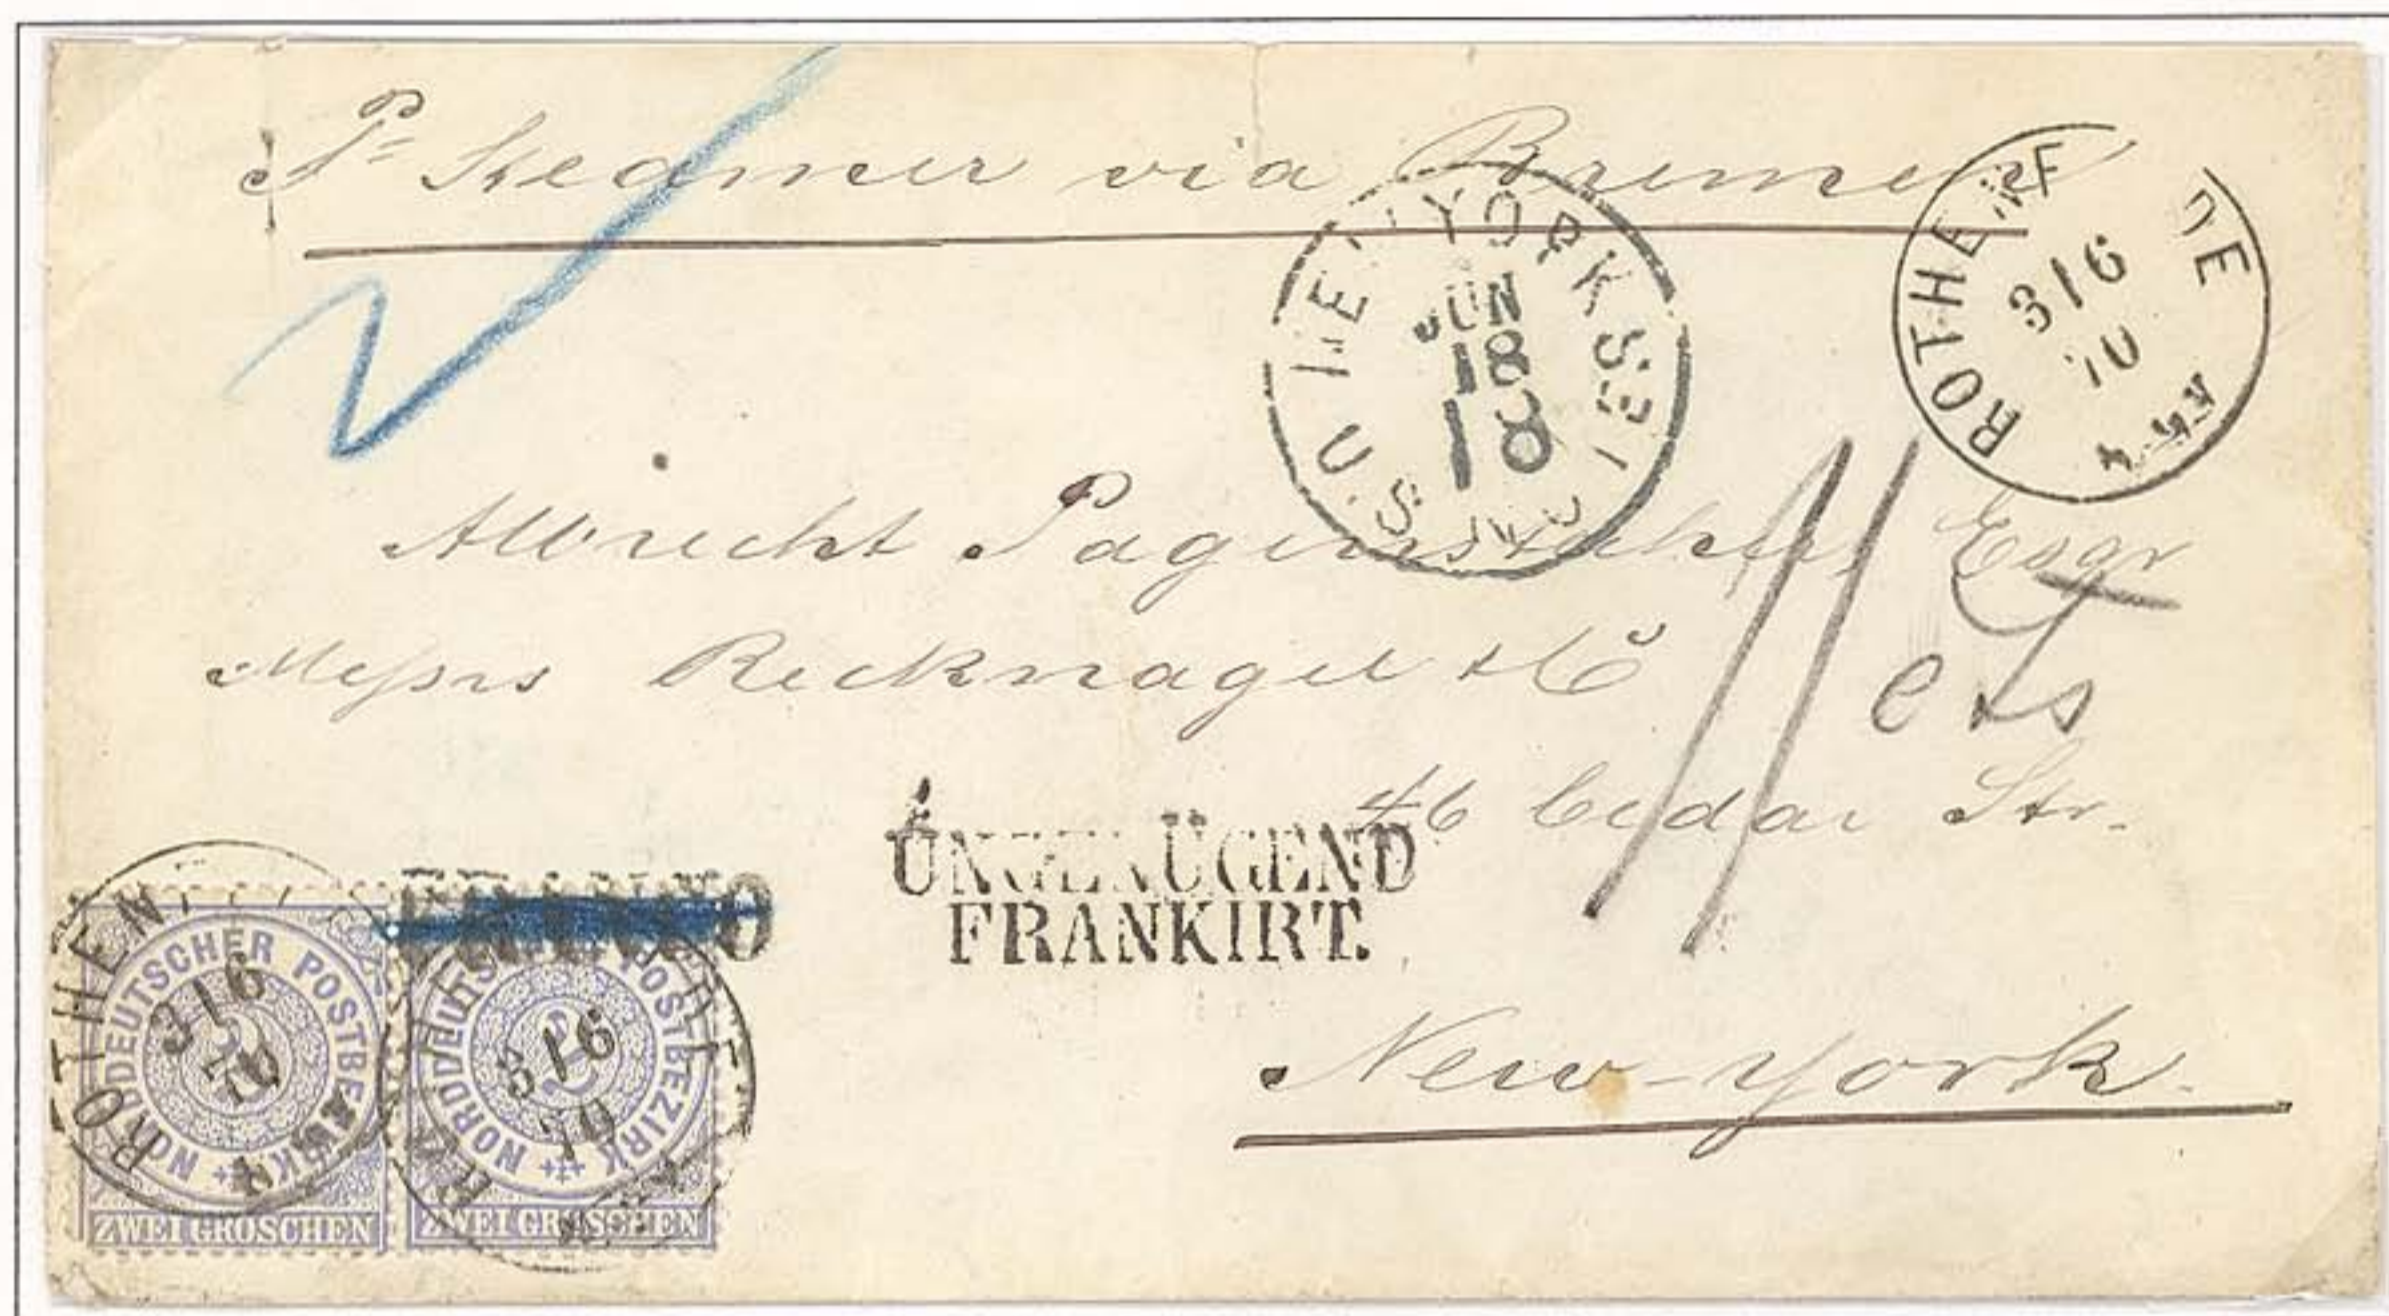 Pr Steamer via Bremen
NEW YORK
U.S.
JUN
18
ROTHEN
3 16
70
Albrecht Pagenstecher Esqr
Messrs Recknagel & Co
cts
46 Cedar Str.
UNGENÜGEND
FRANKIRT.
New-York
ROTHEN
3 16
70
3 16
70
NORDDEUTSCHER POSTBEZIRK
ZWEI GROSCHEN
NORDDEUTSCHER POSTBEZIRK
ZWEI GROSCHEN